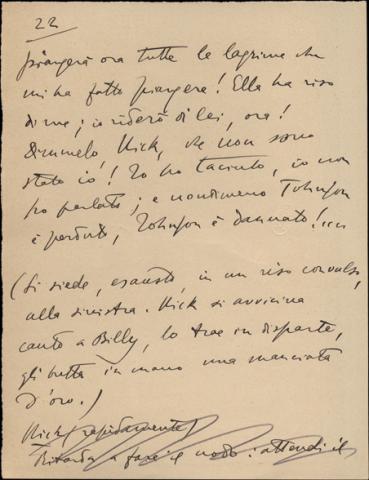 22
piangerà ora tutte le lagrime che
mi ha fatto piangere! Ella ha riso
di me; io riderò di lei, ora!
Dimmelo, Nick, che non sono
stato io! Io ho taciuto, io non
ho parlato; e nondimeno Johnson
è perduto, Johnson è dannato!....
(Si siede, esausto, in un riso convulso,
alla sinistra. Nick si avvicina
cauto a Billy, lo trae in disparte,
gli butta in mano una manciata
d'oro.)
Nick (rapidamente)
Ritarda a fare il nodo: attendi il